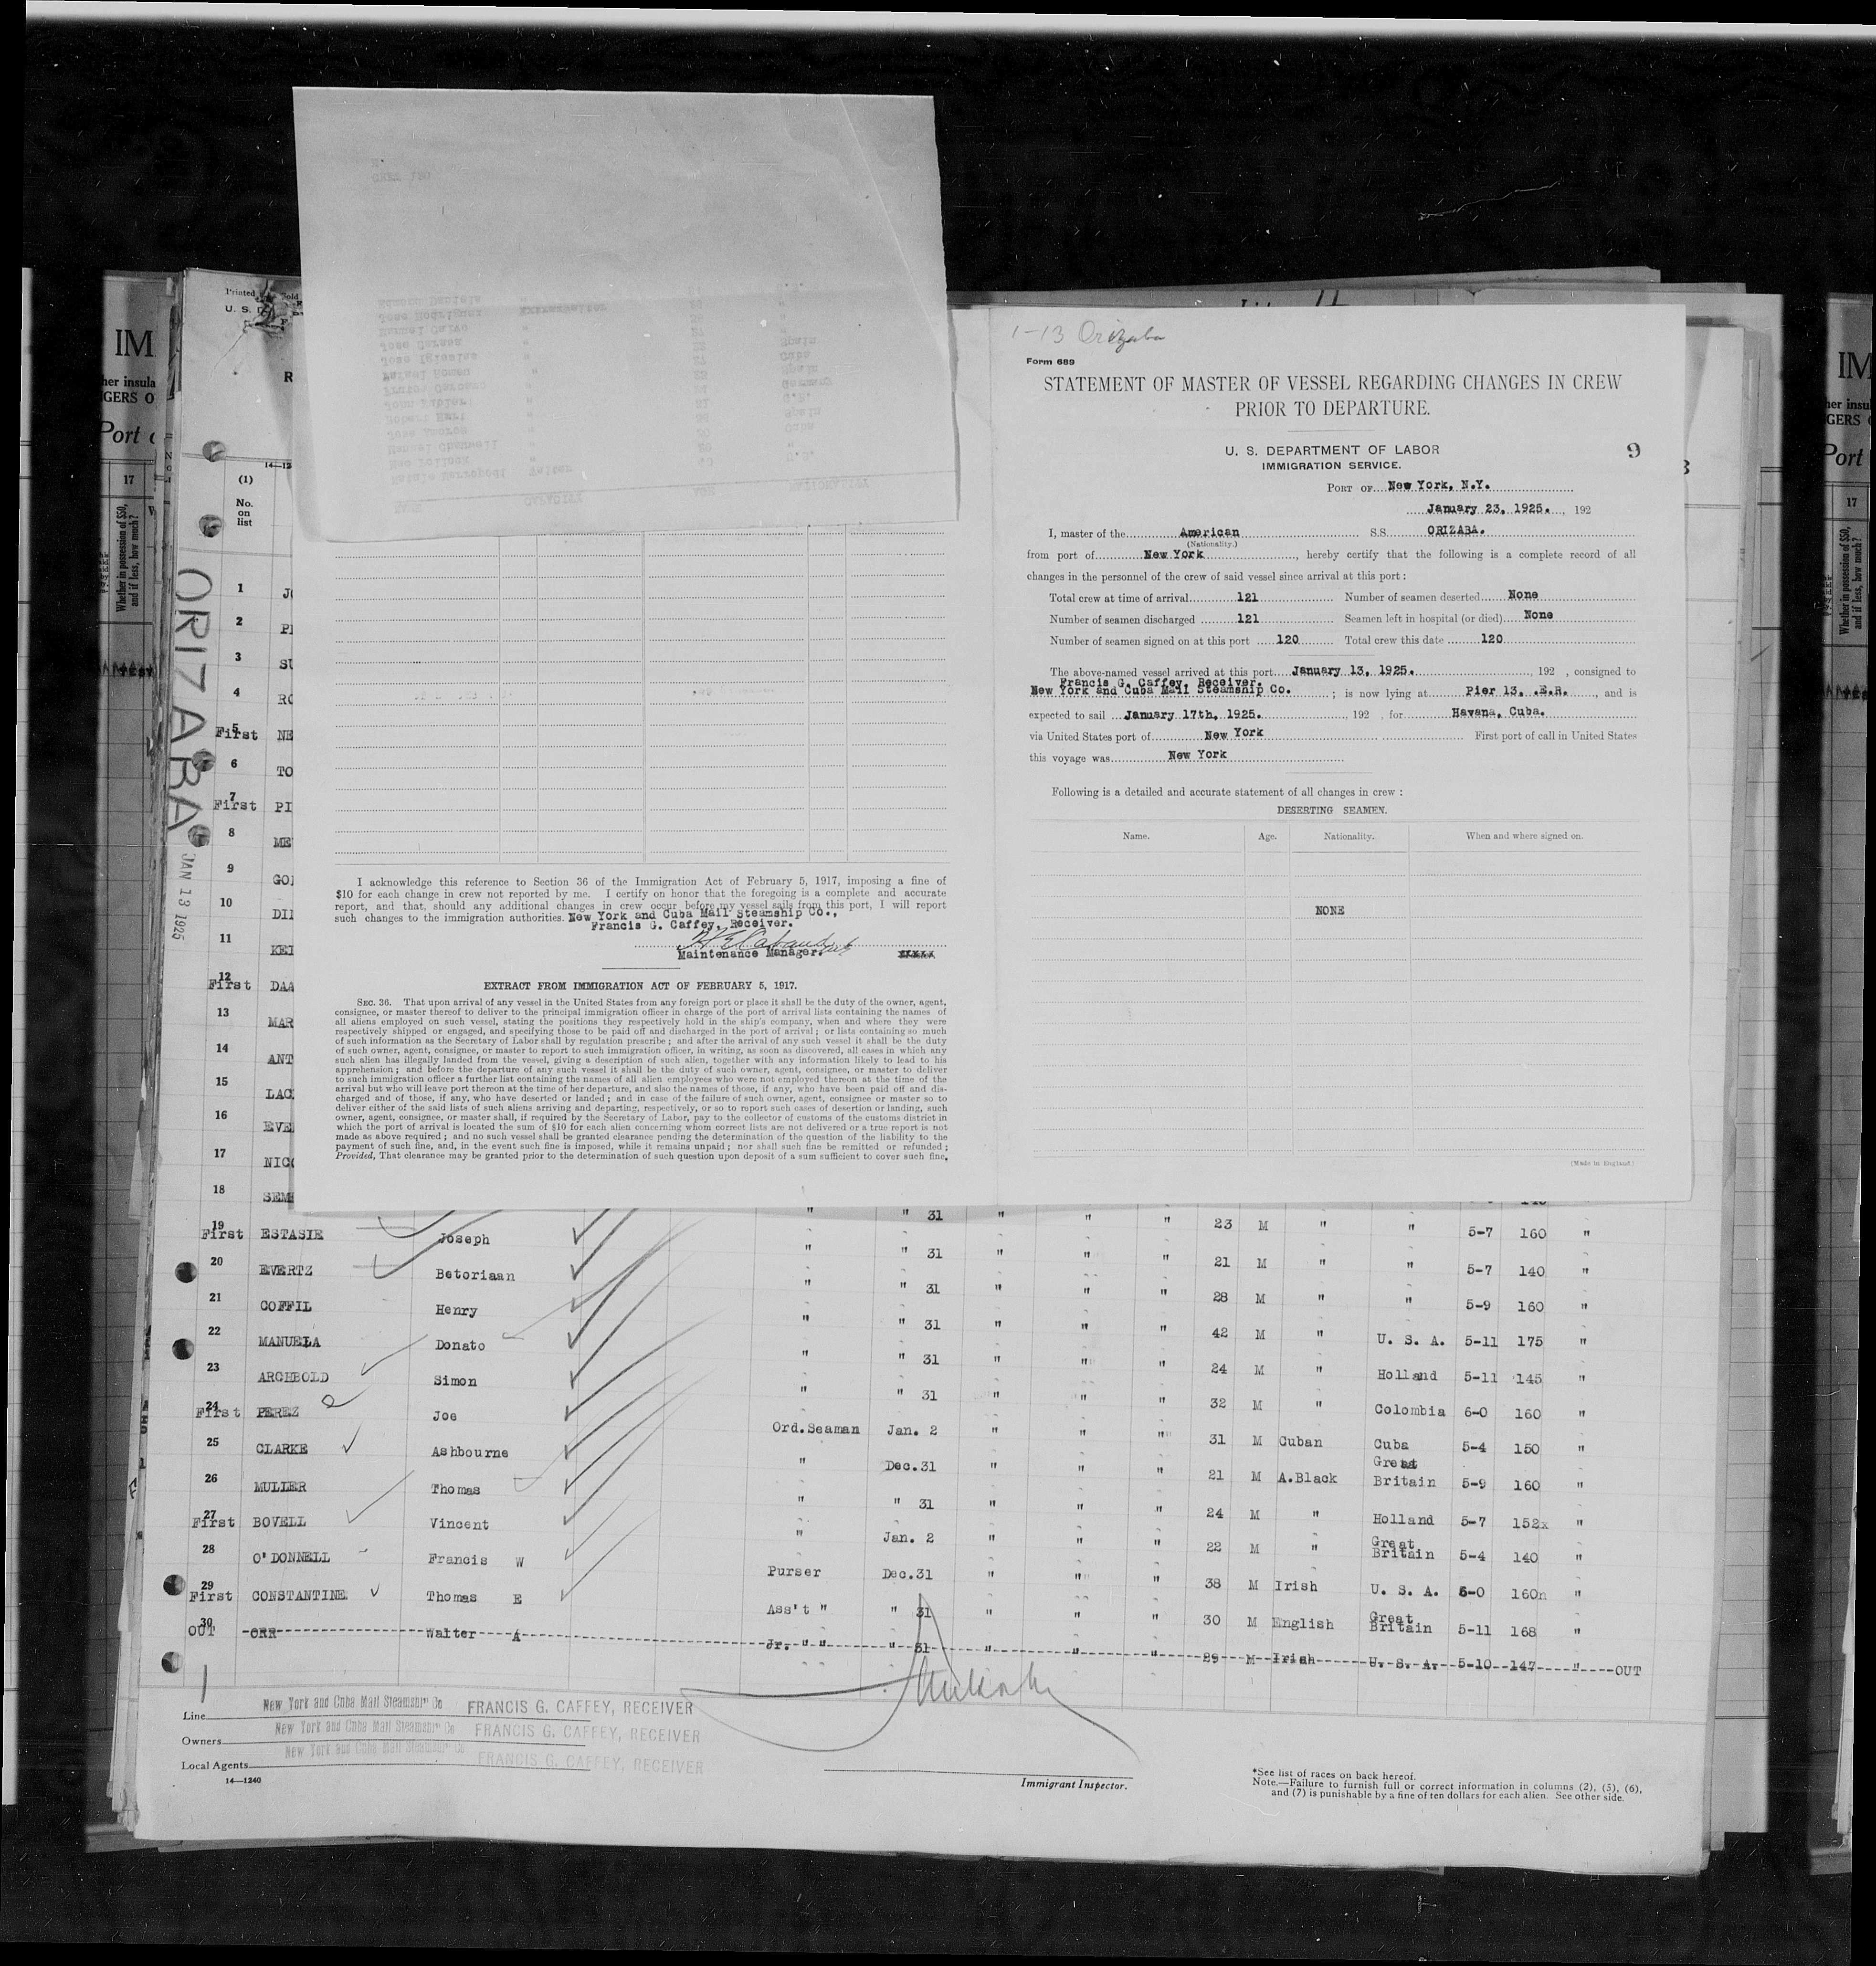 1-13 Orizaba
Form 689
STATEMENT OF MASTER OF VESSEL REGARDING CHANGES IN CREW
PRIOR TO DEPARTURE.
U. S. DEPARTMENT OF LABOR
IMMIGRATION SERVICE.
9
PORT OF New York, N.Y.
January 23, 1925. , 192
I, master of the American S.S. ORIZABA.
(Nationality.)
from port of New York , hereby certify that the following is a complete record of all
changes in the personnel of the crew of said vessel since arrival at this port :
Total crew at time of arrival 121 Number of seamen deserted None
Number of seamen discharged 121 Seamen left in hospital (or died) None
Number of seamen signed on at this port 120 Total crew this date 120
The above-named vessel arrived at this port January 13, 1925. , 192 , consigned to
Francis G. Caffey, Receiver.
New York and Cuba Mail Steamship Co. ; is now lying at Pier 13, .E.R. , and is
expected to sail January 17th, 1925. , 192 , for Havana, Cuba.
via United States port of New York First port of call in United States
this voyage was New York
Following is a detailed and accurate statement of all changes in crew :
DESERTING SEAMEN.
Name. Age. Nationality. When and where signed on.
NONE
(Made in England.)
I acknowledge this reference to Section 36 of the Immigration Act of February 5, 1917, imposing a fine of
$10 for each change in crew not reported by me. I certify on honor that the foregoing is a complete and accurate
report, and that, should any additional changes in crew occur before my vessel sails from this port, I will report
such changes to the immigration authorities. New York and Cuba Mail Steamship Co.,
Francis G. Caffey, Receiver.
Maintenance Manager. xxxxx
EXTRACT FROM IMMIGRATION ACT OF FEBRUARY 5, 1917.
SEC. 36. That upon arrival of any vessel in the United States from any foreign port or place it shall be the duty of the owner, agent,
consignee, or master thereof to deliver to the principal immigration officer in charge of the port of arrival lists containing the names of
all aliens employed on such vessel, stating the positions they respectively hold in the ship's company, when and where they were
respectively shipped or engaged, and specifying those to be paid off and discharged in the port of arrival ; or lists containing so much
of such information as the Secretary of Labor shall by regulation prescribe ; and after the arrival of any such vessel it shall be the duty
of such owner, agent, consignee, or master to report to such immigration officer, in writing, as soon as discovered, all cases in which any
such alien has illegally landed from the vessel, giving a description of such alien, together with any information likely to lead to his
apprehension ; and before the departure of any such vessel it shall be the duty of such owner, agent, consignee, or master to deliver
to such immigration officer a further list containing the names of all alien employees who were not employed thereon at the time of the
arrival but who will leave port thereon at the time of her departure, and also the names of those, if any, who have been paid off and dis-
charged and of those, if any, who have deserted or landed ; and in case of the failure of such owner, agent, consignee or master so to
deliver either of the said lists of such aliens arriving and departing, respectively, or so to report such cases of desertion or landing, such
owner, agent, consignee, or master shall, if required by the Secretary of Labor, pay to the collector of customs of the customs district in
which the port of arrival is located the sum of $10 for each alien concerning whom correct lists are not delivered or a true report is not
made as above required ; and no such vessel shall be granted clearance pending the determination of the question of the liability to the
payment of such fine, and, in the event such fine is imposed, while it remains unpaid ; nor shall such fine be remitted or refunded ;
Provided, That clearance may be granted prior to the determination of such question upon deposit of a sum sufficient to cover such fine,
ORIZABA
JAN 13 1925
Printed
U. S.
(1)
No.
on
list
1
2 PI
3 SU
4 RO
5 First NE
6 TO
7 First PI
8 ME
9 GO
10 DI
11 KE
12 First DAA
13 MAR
14 ANT
15 LAC
16 EVE
17 NIC
18 SEM
" " 31 " " " 23 M " " 5-7 160 "
19 First ESTASIE Joseph " " 31 " " " 21 M " " 5-7 140 "
20 EVERTZ Betoriaan " " 31 " " " 28 M " " 5-9 160 "
21 COFFIL Henry " " 31 " " " 42 M " U. S. A. 5-11 175 "
22 MANUELA Donato " " 31 " " " 24 M " Holland 5-11 145 "
23 ARCHBOLD Simon " " 31 " " " 32 M " Colombia 6-0 160 "
24 First PEREZ Joe Ord.Seaman Jan. 2 " " " 31 M Cuban Cuba 5-4 150 "
25 CLARKE Ashbourne " Dec.31 " " " 21 M A.Black Great Britain 5-9 160 "
26 MULLER Thomas " " 31 " " " 24 M " Holland 5-7 152x "
27 First BOVELL Vincent " Jan. 2 " " " 22 M " Great Britain 5-4 140 "
28 O'DONNELL Francis W Purser Dec.31 " " " 38 M Irish U. S. A. 6-0 160n "
29 First CONSTANTINE Thomas E Ass't " " 31 " " " 30 M English Great Britain 5-11 168 "
30 OUT ORR Walter A Jr. " " " 31 " " " 29 M Irish U. S. A. 5-10 147 " OUT
Line New York and Cuba Mail Steamship Co FRANCIS G. CAFFEY, RECEIVER
Owners New York and Cuba Mail Steamship Co FRANCIS G. CAFFEY, RECEIVER
Local Agents New York and Cuba Mail Steamship Co FRANCIS G. CAFFEY, RECEIVER
14—1240
Immigrant Inspector.
*See list of races on back hereof.
Note.—Failure to furnish full or correct information in columns (2), (5), (6),
and (7) is punishable by a fine of ten dollars for each alien. See other side.
IM
her insula
GERS O
Port
17
Whether in possession of $50,
and if less, how much?
IM
her insu
GERS
Port
17
Whether in possession of $50,
and if less, how much?